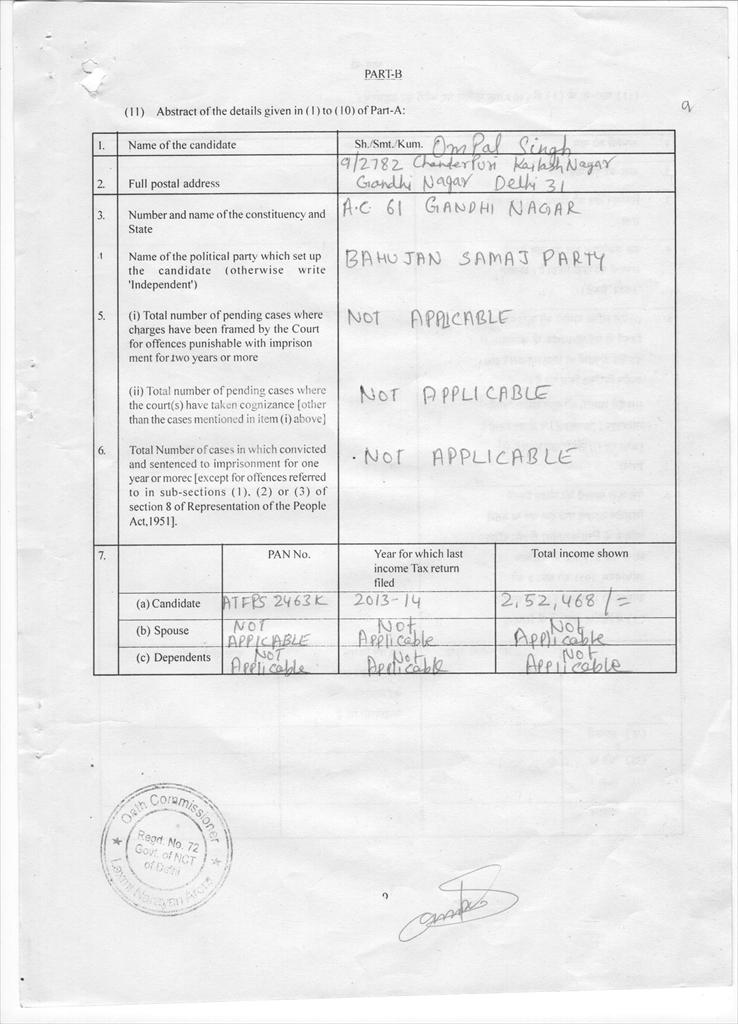 PART-B
9
(11) Abstract of the details given in (1) to (10) of Part-A:
1. Name of the candidate Sh./Smt./Kum. Om Pal Singh
9/2782 Chander Puri Kailash Nagar
2. Full postal address Gandhi Nagar Delhi 31
3. Number and name of the constituency and A.C 61 GANDHI NAGAR
State
Name of the political party which set up BAHUJAN SAMAJ PARTY
the candidate (otherwise write
'Independent')
5. (i) Total number of pending cases where NOT APPLICABLE
charges have been framed by the Court
for offences punishable with imprison
ment for two years or more
(ii) Total number of pending cases where NOT APPLICABLE
the court(s) have taken cognizance [other
than the cases mentioned in item (i) above]
6. Total Number of cases in which convicted NOT APPLICABLE
and sentenced to imprisonment for one
year or morec [except for offences referred
to in sub-sections (1), (2) or (3) of
section 8 of Representation of the People
Act,1951].
7. PAN No. Year for which last Total income shown
income Tax return
filed
(a) Candidate ATFPS 2463K 2013-14 2,52,468/=
(b) Spouse NOT APPLICABLE Not Applicable Not Applicable
(c) Dependents NOT Applicable Not Applicable Not Applicable
Oath Commissioner
Regd. No. 72
Govt. of NCT
of Delhi
Laxmi Narayan Arora